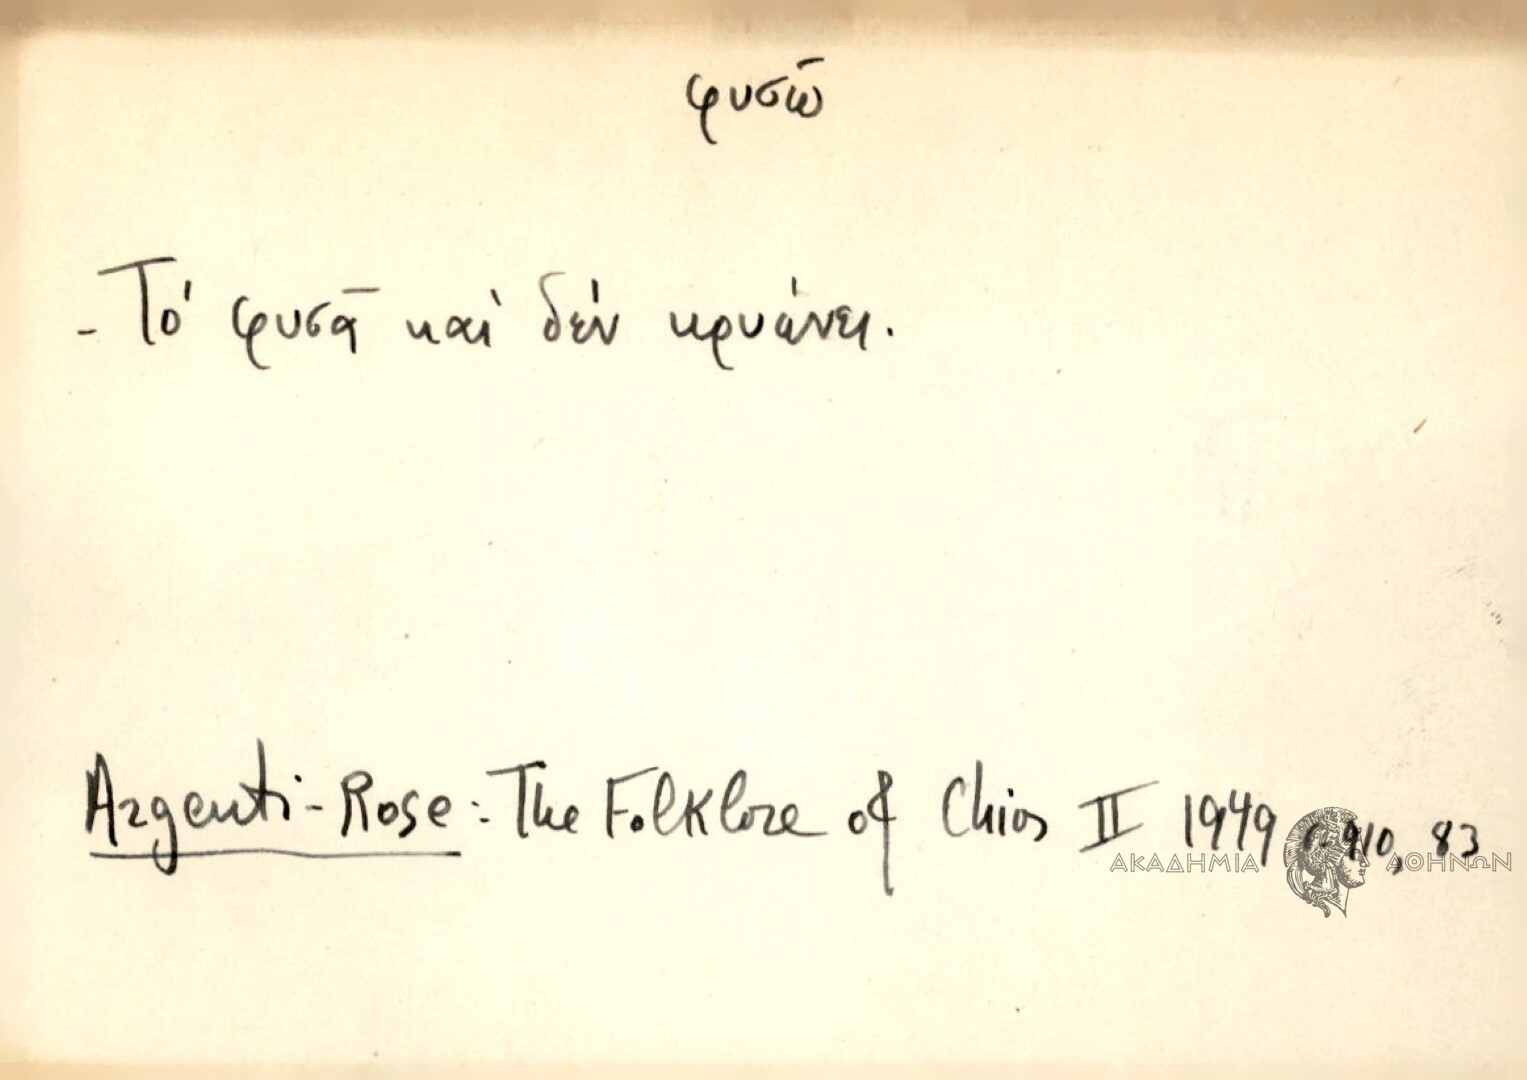 φυσῶ
- Τό φυσᾶ καὶ δέν κρυάνει.
Argenti-Rose: The Folklore of Chios II 1949 910, 83
ΑΚΑΔΗΜΙΑ ΑΘΗΝΩΝ